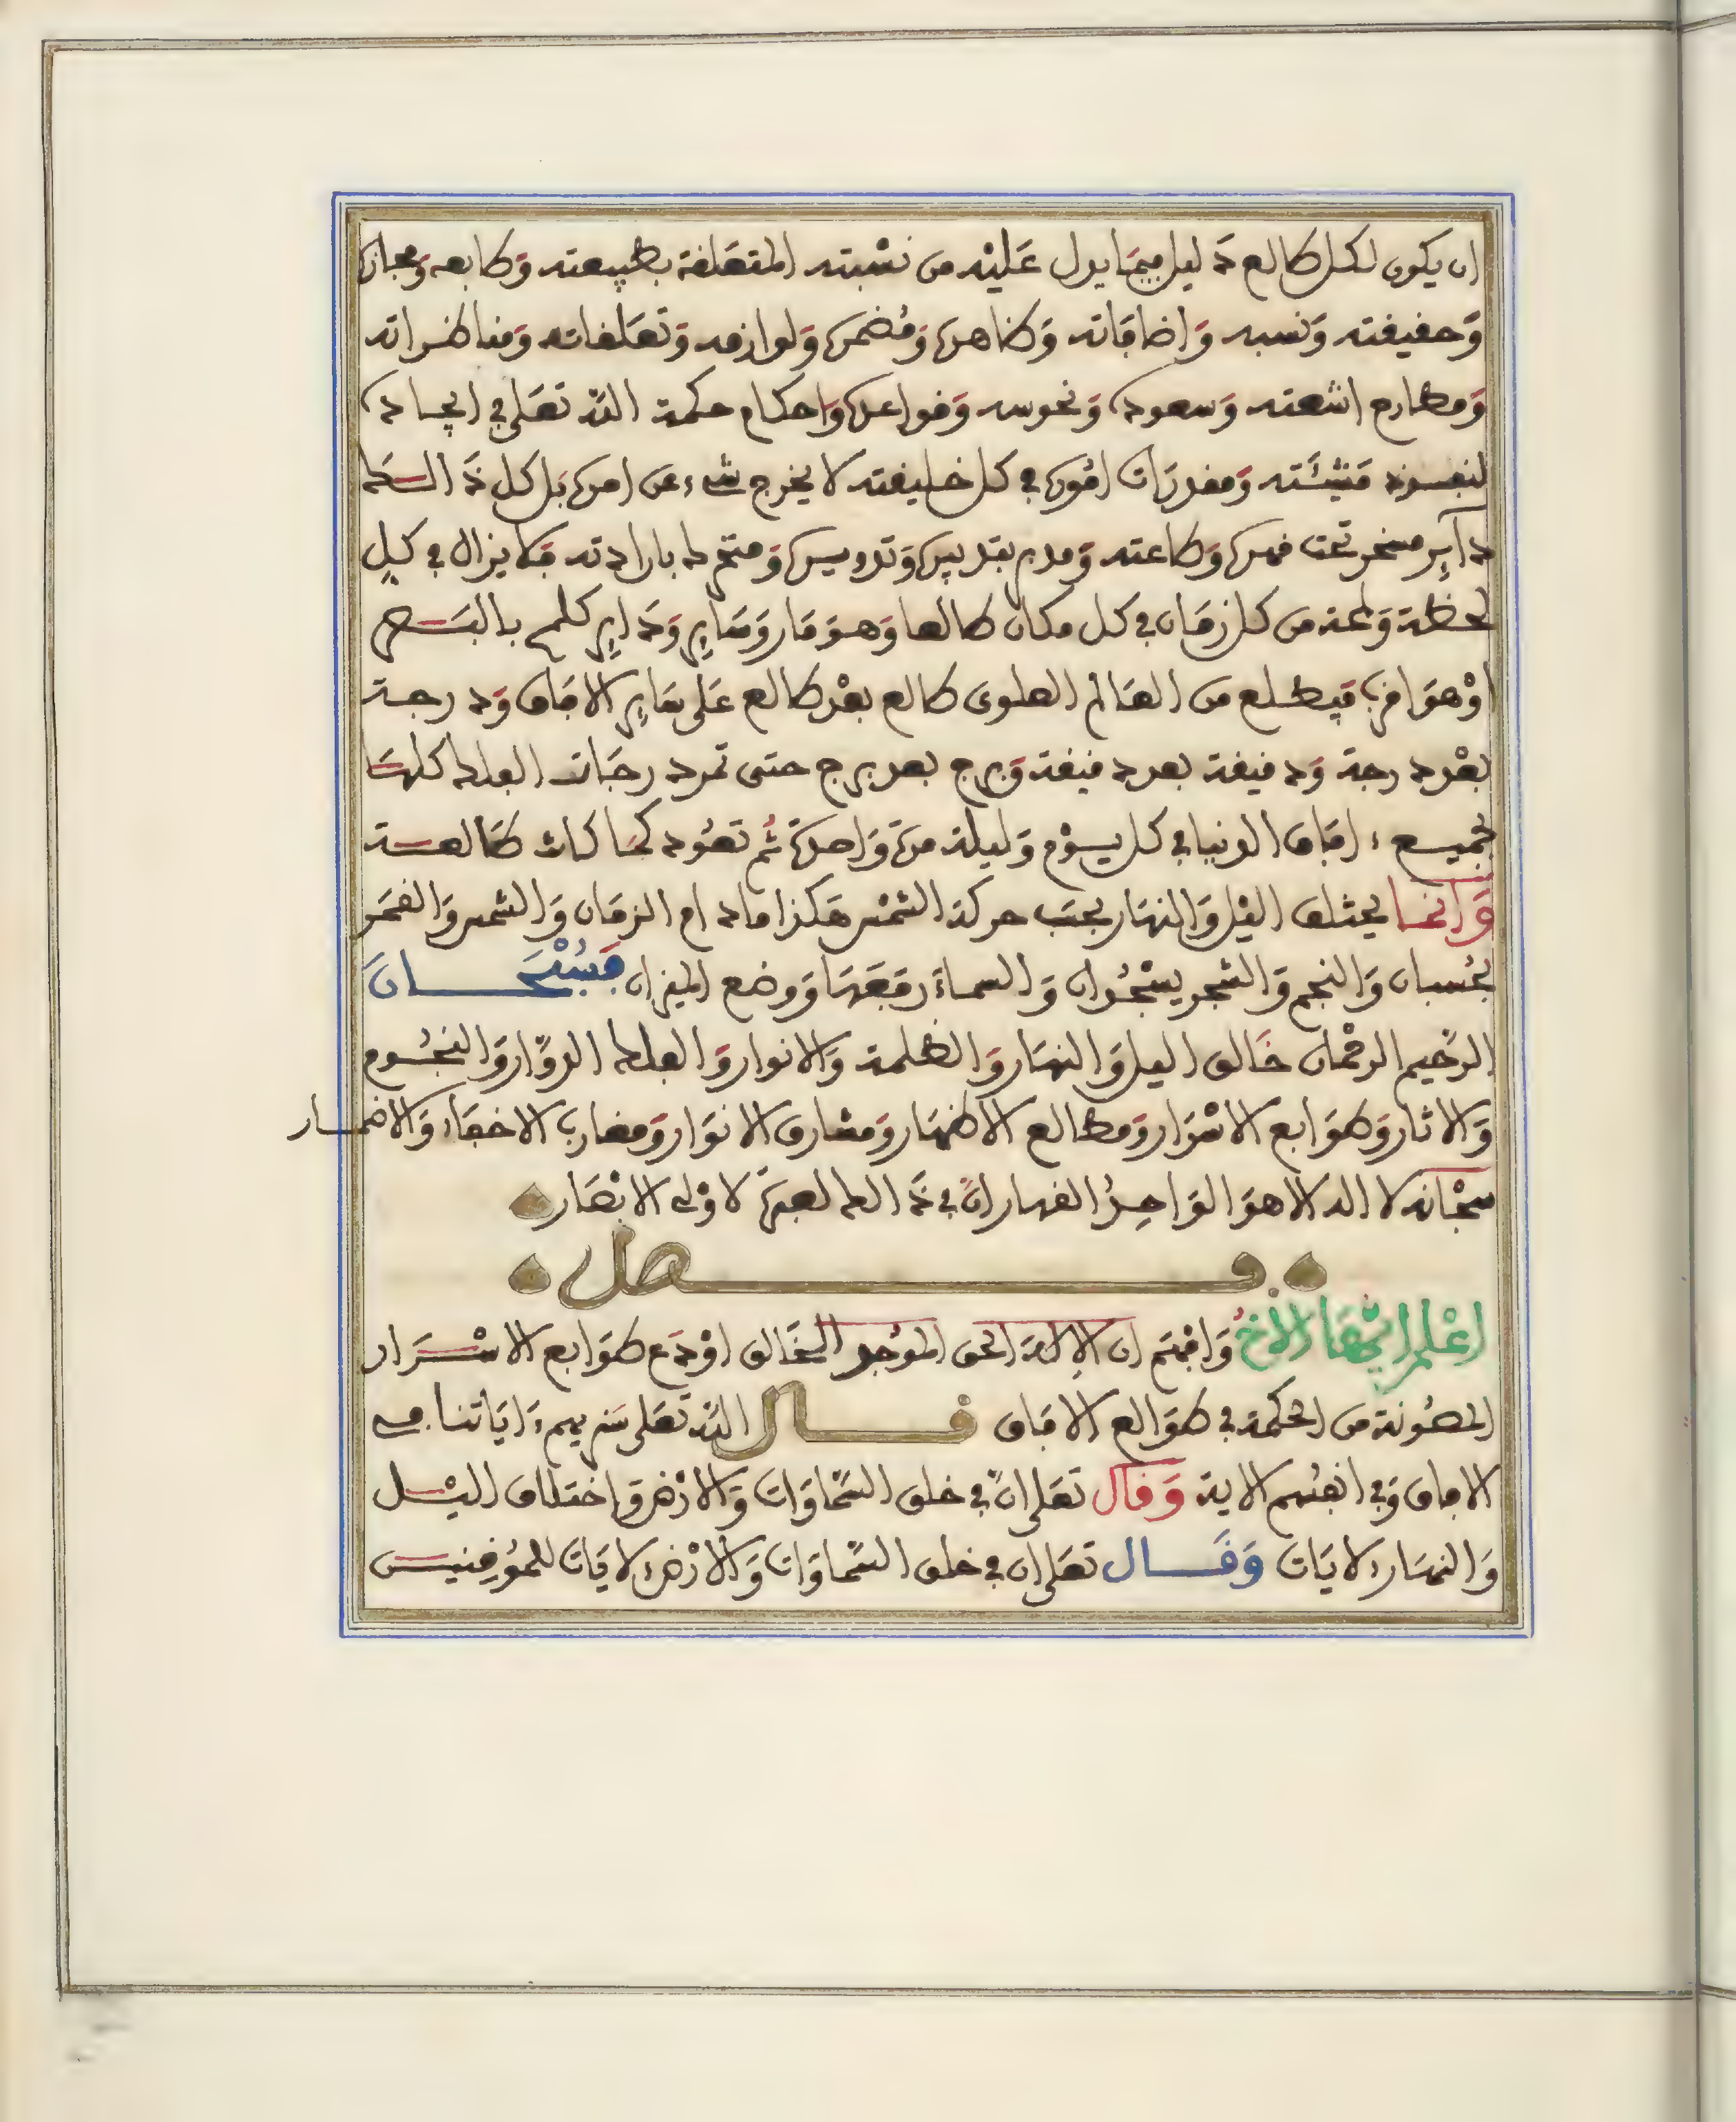 ان يكون لكل طالع دليل فيما يدل عَليْه من نسْبته المتعَلقة بطبيعته وَطابعه وَمجازه
وَحقيقته وَنسبه وَاضافاته وَظاهره وَمُضمره وَلوازمه وَتعَلقاته وَمناظراته
وَمطارح اشعته وَسعوده وَنحوسه وَقواعده وَاحكام حكمة الله تعَلى في ايجاده
لنفسوذ مَشيئَته وَمقدرَات امُوره في كل خليقته لا يخرج شيء عن امره بَل كل ذَالــك
دآيِر مسخر تحت قهره وَطاعته وَمدبر بتدبيره وَتدوميره وَمتحرك بارادته فَلا يزال في كلِ
لحظة وَلمحة من كل زمَان في كل مكان طالعا وَهوَ مَار وَسَايِر وَدَايِر كلمح بالبَــصر
اوْ هوَ اقرب فَيطلع من العَالم العلوي طالع بعْد طالع عَلى سَايِر الافاق وَدرجة
بعْد درجة وَدقيقة بعد دقيقة وَبرج بعد برج حتى تمر درجَات الفلك كلهَا
بجميــع ءافاق الدنيا في كل يــوْم وَليلة مرة وَاحدة ثُم تعُود كمَا كانت طَالعــة
وَانمــا يختلف الليْل وَالنهَار بحسَب حركة الشمْس هَكذا ما دام الزمَان وَالشمس وَالقمَر
بحُسبان وَالنجم وَالشجر يسْجُدان وَالسماءَ رفعَهَا وَوضع الميزان فَسُبْحَــــان
الرَّحيم الرحْمان خَالق الليل وَالنهَار وَالظلمة وَالانوار وَالفلك الدوَّار وَالنجُــوم
وَالاثار وَطوَابع الاسْرَار وَمطالع الاظهَار وَمشارق الانوَار وَمغارب الاخفَاء وَالاضمــار
سبْحَانه لا اله الا هوَ الوَاحِدُ القهار انَّ في ذَالك لعبرَة لاوْلى الابْصَار
فــــــــصل
اعْلم ايهَا الاخُ وَافْهَم ان الاِلاه الحق الموُجد الخَالق اوْدَع طوَابع الاسْــرَار
المصُونة من الحكمة في طوَالع الافاق قــــال الله تعَلى سَنريهم ءَايَاتنا في
الافاق وَفي انفُسهم الاية وَقال تعَلى انَّ في خلق السَّمَاوَات وَالارْض وَاختلاف الليْــل
وَالنهَار ءلايَات وَقَــــال تعَلى ان في خلق السَّمَاوَات وَالارْض ءلايَات للموُقِنيــن